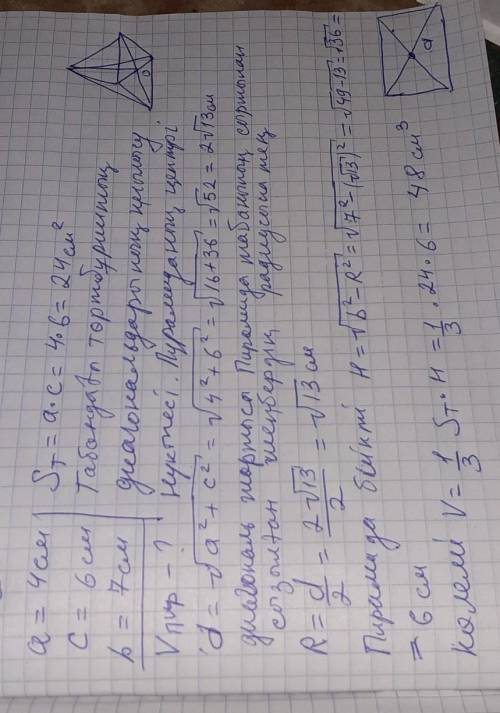 a = 4см
c = 6см
b = 7см
Vпир - ?
Sт = a · c = 4 · 6 = 24см²
Табандағы төртбұрыштың
диагональдарының қиылысу
нүктесі. Пирамиданың центрі
d = √a² + c² = √4² + 6² = √16+36 = √52 = 2√13см
диагональ жартысы Пирамида табанының сыртынан
сызылған шеңбердің радиусына тең
R = d/2 = 2√13/2 = √13 см
Пирамида биікті H = √b² - R² = √7² - (√13)² = √49-13 = √36 =
= 6 см
Көлемі V = 1/3 Sт · H = 1/3 · 24 · 6 = 48 см³
O
d